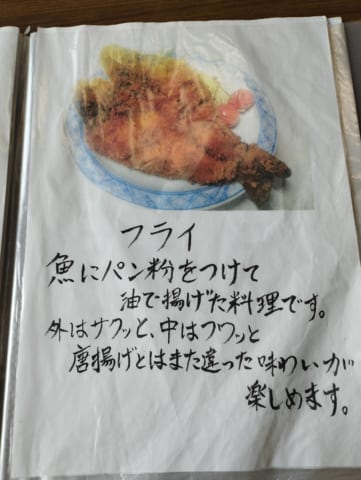 フライ
魚にパン粉をつけて
油で揚げた料理です。
外はサクッと、中はフワッと
唐揚げとはまた違った味わいが
楽しめます。